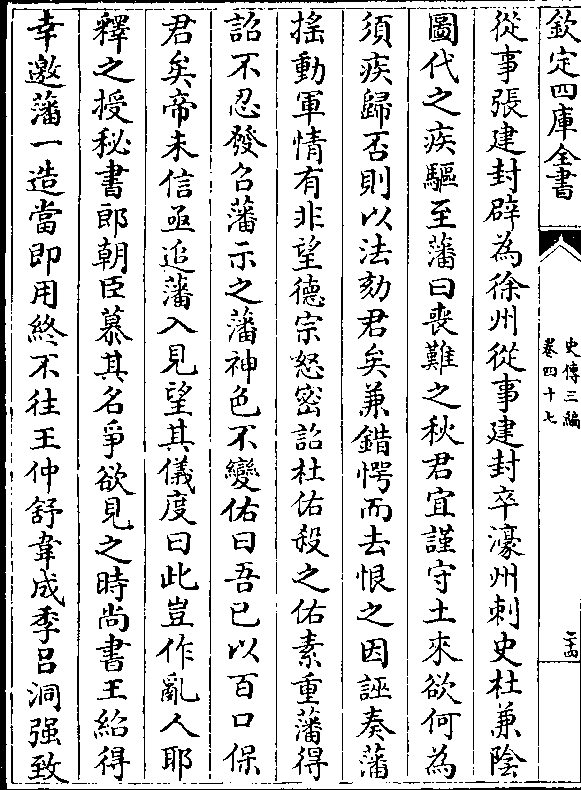 欽定四庫全書
史傳三編
卷四十七
二十四
從事張建封辟為徐州從事建封卒濠州刺史杜兼陰
圖代之疾驅至藩曰喪難之秋君宜謹守土來欲何為
須疾歸否則以法劾君矣兼錯愕而去恨之因誣奏藩
搖動軍情有非望德宗怒密詔杜佑殺之佑素重藩得
詔不忍發召藩示之藩神色不變佑曰吾已以百口保
君矣帝未信亟追藩入見望其儀度曰此豈作亂人耶
釋之授秘書郎朝臣慕其名爭欲見之時尚書王紹得
幸邀藩一造當即用終不往王仲舒韋成季呂洞强致